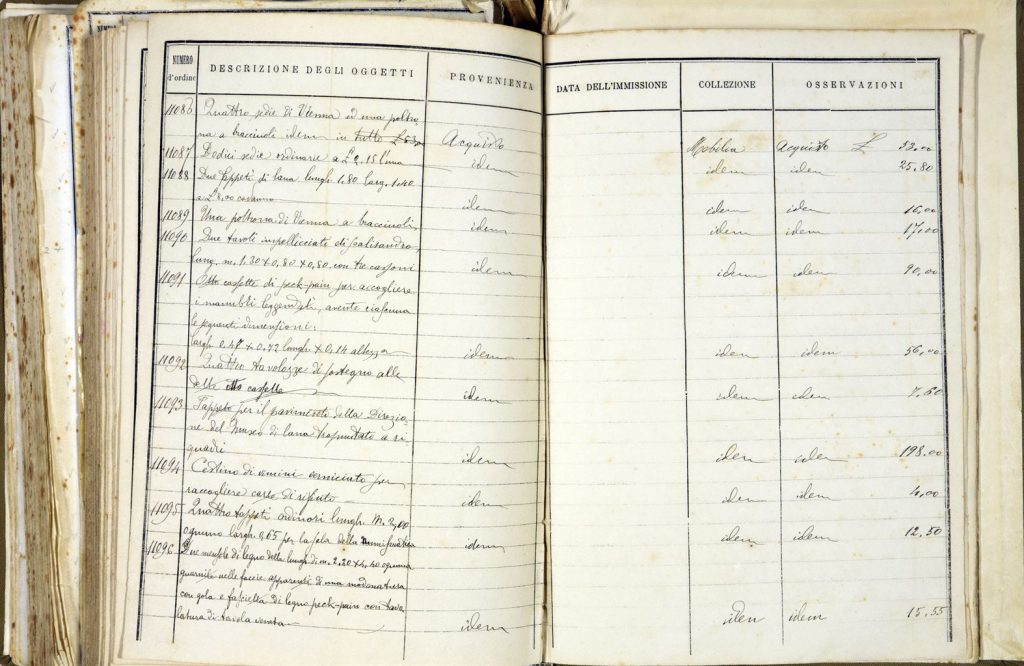 NUMERO
d'ordine
DESCRIZIONE DEGLI OGGETTI
PROVENIENZA
DATA DELL'IMMISSIONE
COLLEZIONE
OSSERVAZIONI
11086 Quattro sedie di Vienna ed una poltro-
na a bracciuoli idem in tutto Acquisto Mobilia Acquisto £ 52.00
11087 Dodici sedie ordinarie a £ 2.15 l'una idem idem idem 25,80
11088 Due tappeti di lana lungh. 1.80 larg. 1.40
a £ 8.00 idem idem idem 16,00
11089 Una poltrona di Vienna a bracciuoli idem idem idem 17,00
11090 Due tavoli impellicciate di palisandro,
lung. m. 1.30 x 0,80 x 0,80. con tre cassoni idem idem idem 90,00
11091 Otto cassette di peck-pain per accogliere
i manubli leggendati, avente ciascuna
le seguenti dimensioni:
largh. 0.47 x 0.72 lungh. x 0.14 altezza idem idem idem 56,00
11092 Quattro tavolozze di sostegno alle
dette otto cassette idem idem idem 7,60
11093 Tappeto per il pavimento della Direzio-
ne del Museo di lana trapuntato a ri-
quadri idem idem idem 198.00
11094 Cestino di vimini verniciato per
raccogliere carte di rifiuto idem idem idem 4,00
11095 Quattro tappeti ordinari lungh. M. 2,00
ognuno largh. 0,65 per la sala della numismatica idem idem idem 12,50
11096 Due mensole di legno della lungh. di m. 2.20 x 4.40 ognuna
guarnite nelle faccie apparenti di una modanatura
con gola e fascietta di legno peck-pain con tavo-
latura di tavola venata idem idem idem 15,55